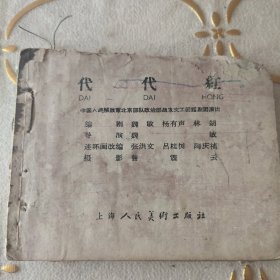 代代红
DAI DAI HONG
中国人民解放军北京部队政治部战友文工团话剧团演出
编剧 魏敏 杨有声 林朗
导演 魏敏
连环画改编 张洪文 吕枕 陶庆
摄影
上海人民美术出版社